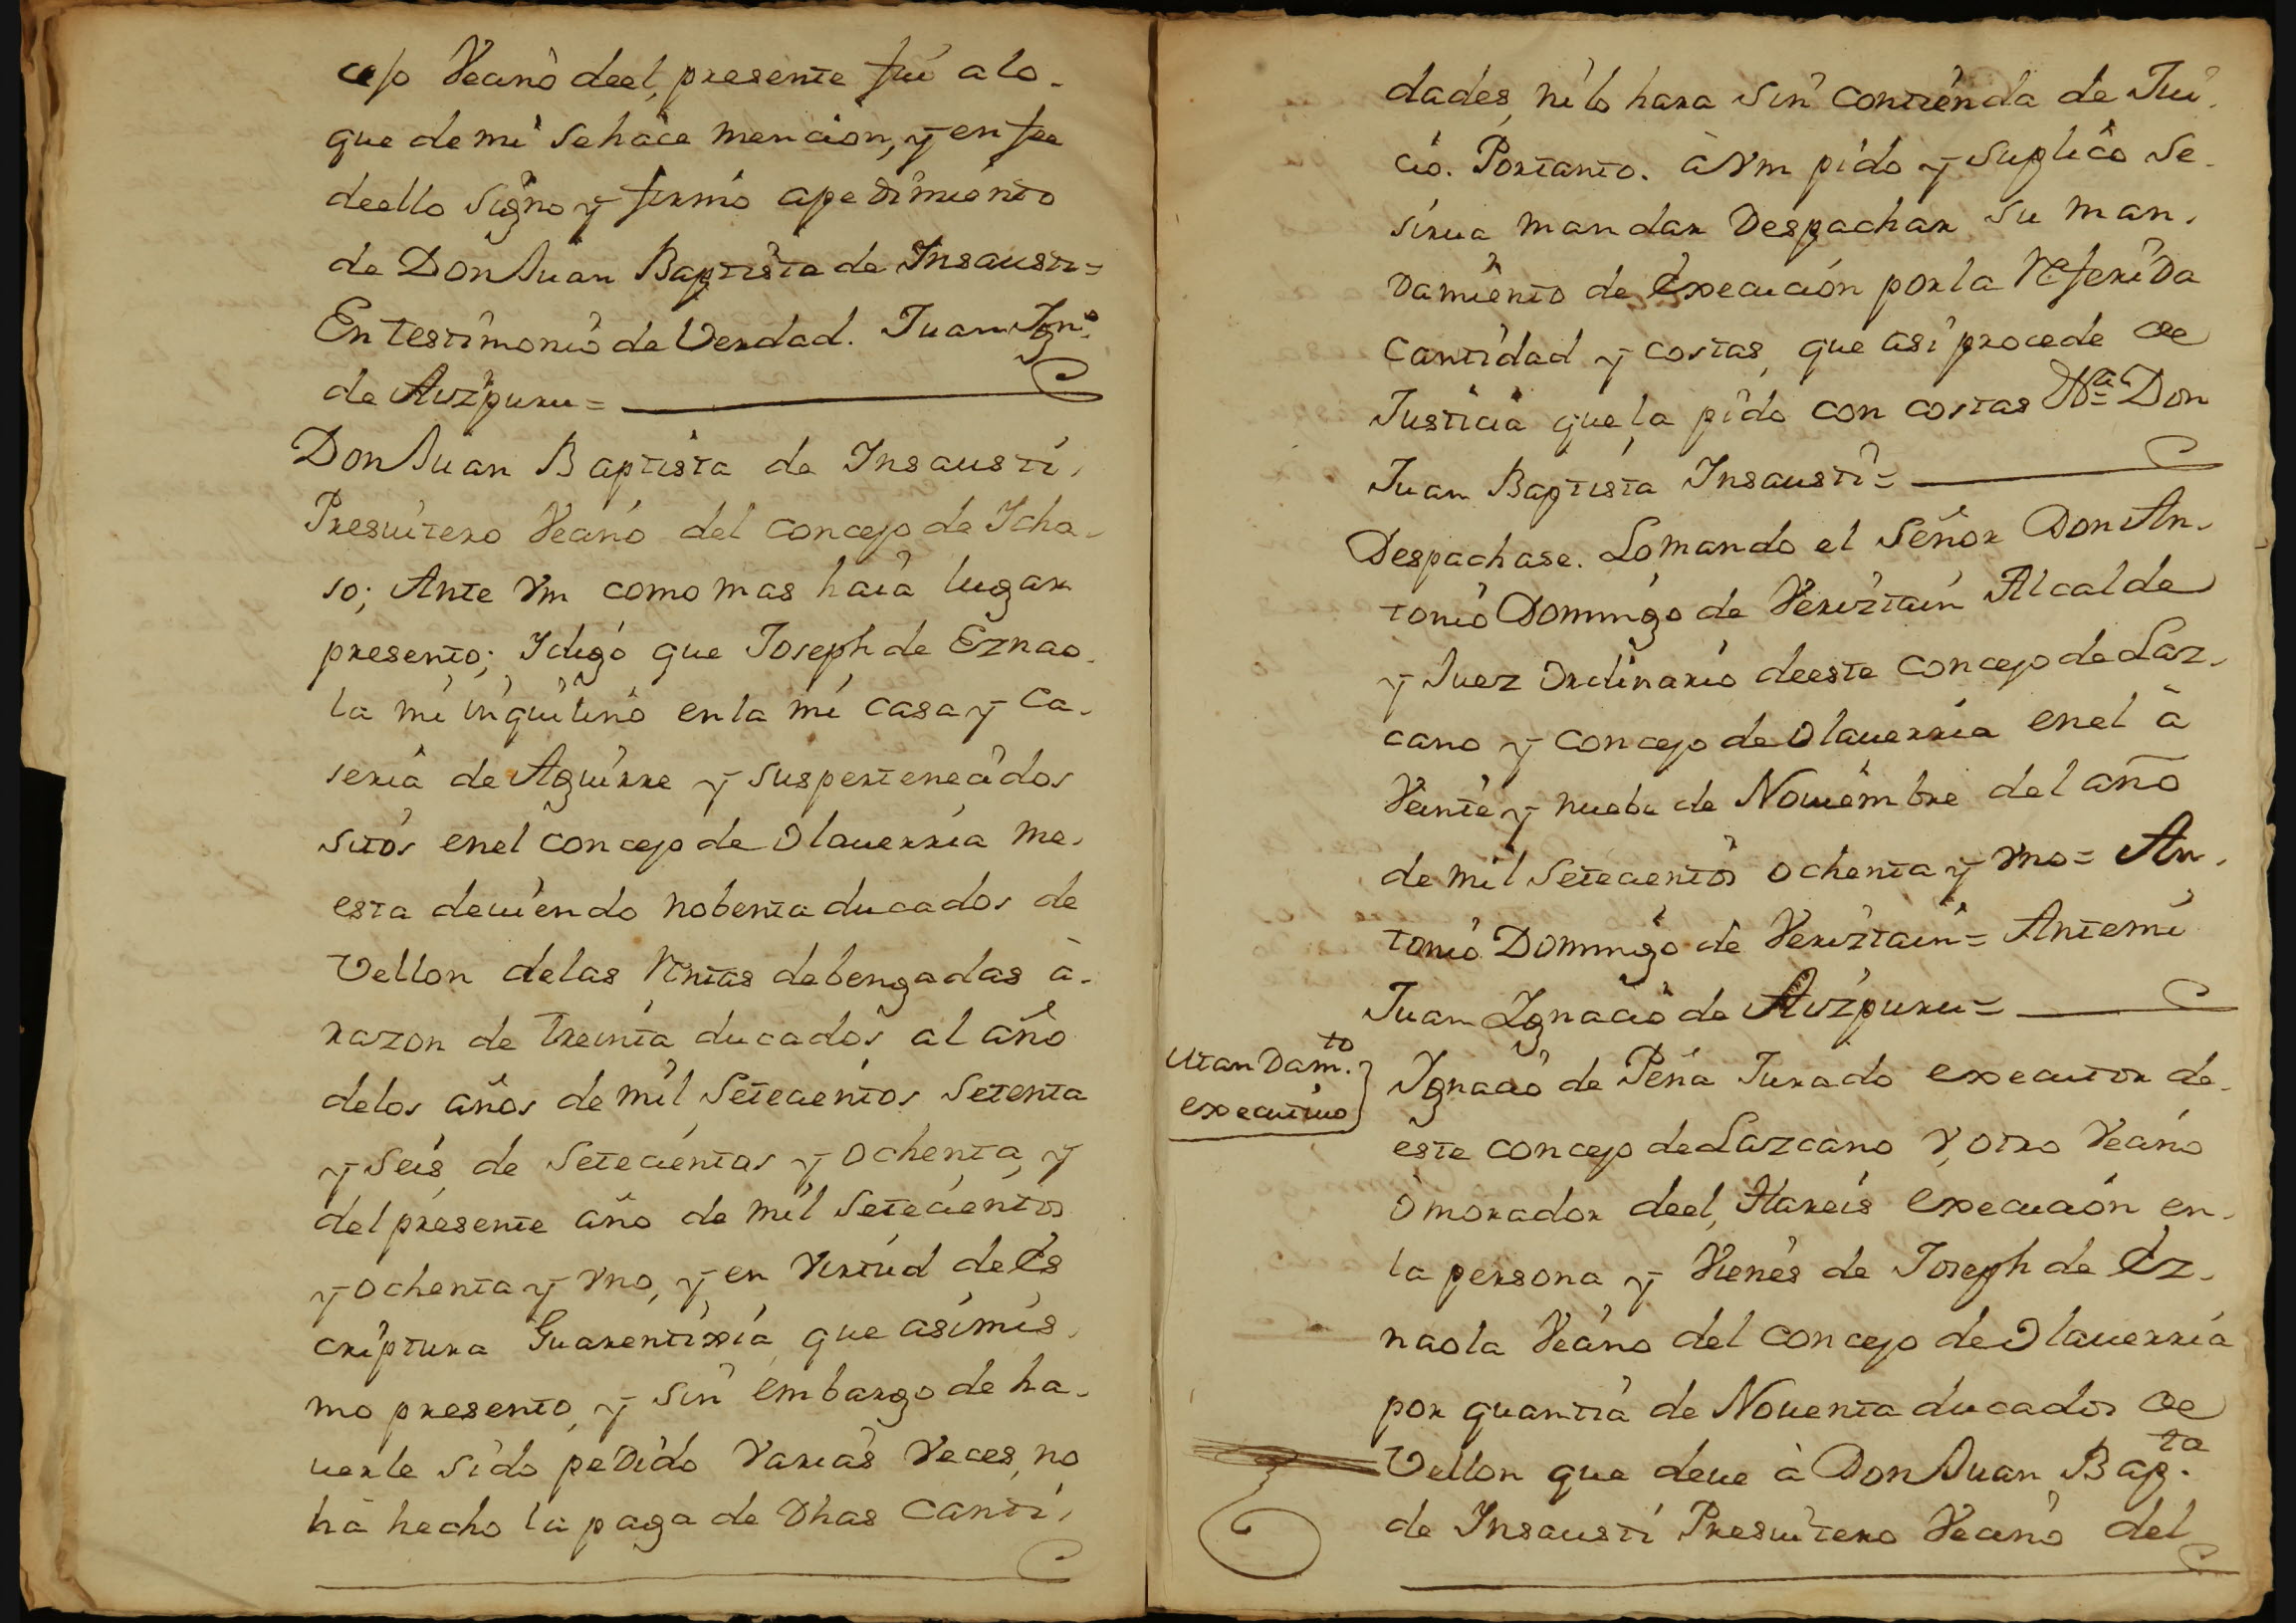 cejo Vecino deel, presente fui alo-
que demi sehace mencion, y en fee
deello signo y firmo apedimiento
de Don Juan Baptista de Insausti=
En testimonio de Verdad. Juan Ign.º
de Auzpuru=
Don Juan Baptista de Insausti,
Presuitero Vecino del concejo de Icha-
so; Ante Vm como mas haia lugar
presento; Idigo que Joseph de Eznao-
la mi inquilino enla mi casa y Ca-
seria de Aguirre y suspertenecidos
sitos enel concejo de Olauerria me-
esta deuiendo nobenta ducados de
Vellon delas Rentas debengadas à-
razon de treinta ducados al año
delos años de mil Setecientos Setenta
y seis, de setecientos y ochenta, y
del presente año de mil setecientos
y ochenta y Vno, y en Virtud de Es
criptura Guarentixia que asimis-
mo presento, y sin embargo de ha-
uerle sido pedido Varias Veces, no
ha hecho la paga de Dhas canti-
dades, ni lo hara sin contienda de Jui-
cio. Portanto. à Vm pido y suplico se-
sirua mandar Despachar su man-
damiento de Execucion por la Referida
Cantidad y costas, que asi procede de
Justicia que la pido con costas Vª Don
Juan Baptista Insausti=
Despachase. Lomando el Señor Don An-
tonio Domingo de Veriztain Alcalde
y Juez Ordinario deeste concejo de Laz-
cano y concejo de Olauerria enel à
Veinte y nuebe de Nouiembre del año
de mil Setecientos ochenta y Vno= An-
tonio Domingo de Veriztain= Antemi
Juan Ignacio de Auzpuru=
Mandam.to
executiuo
Ygnacio de Peña Jurado executor de-
este concejo de Lazcano V, otro Vecino
ò morador deel, Hareis execucion en-
la persona y Vienes de Joseph de Ez-
naola Vecino del concejo de Olauerria
por quantia de Nouenta ducados de
Vellon que deue à Don Juan Bap.ta
de Insausti Presuitero Vecino del